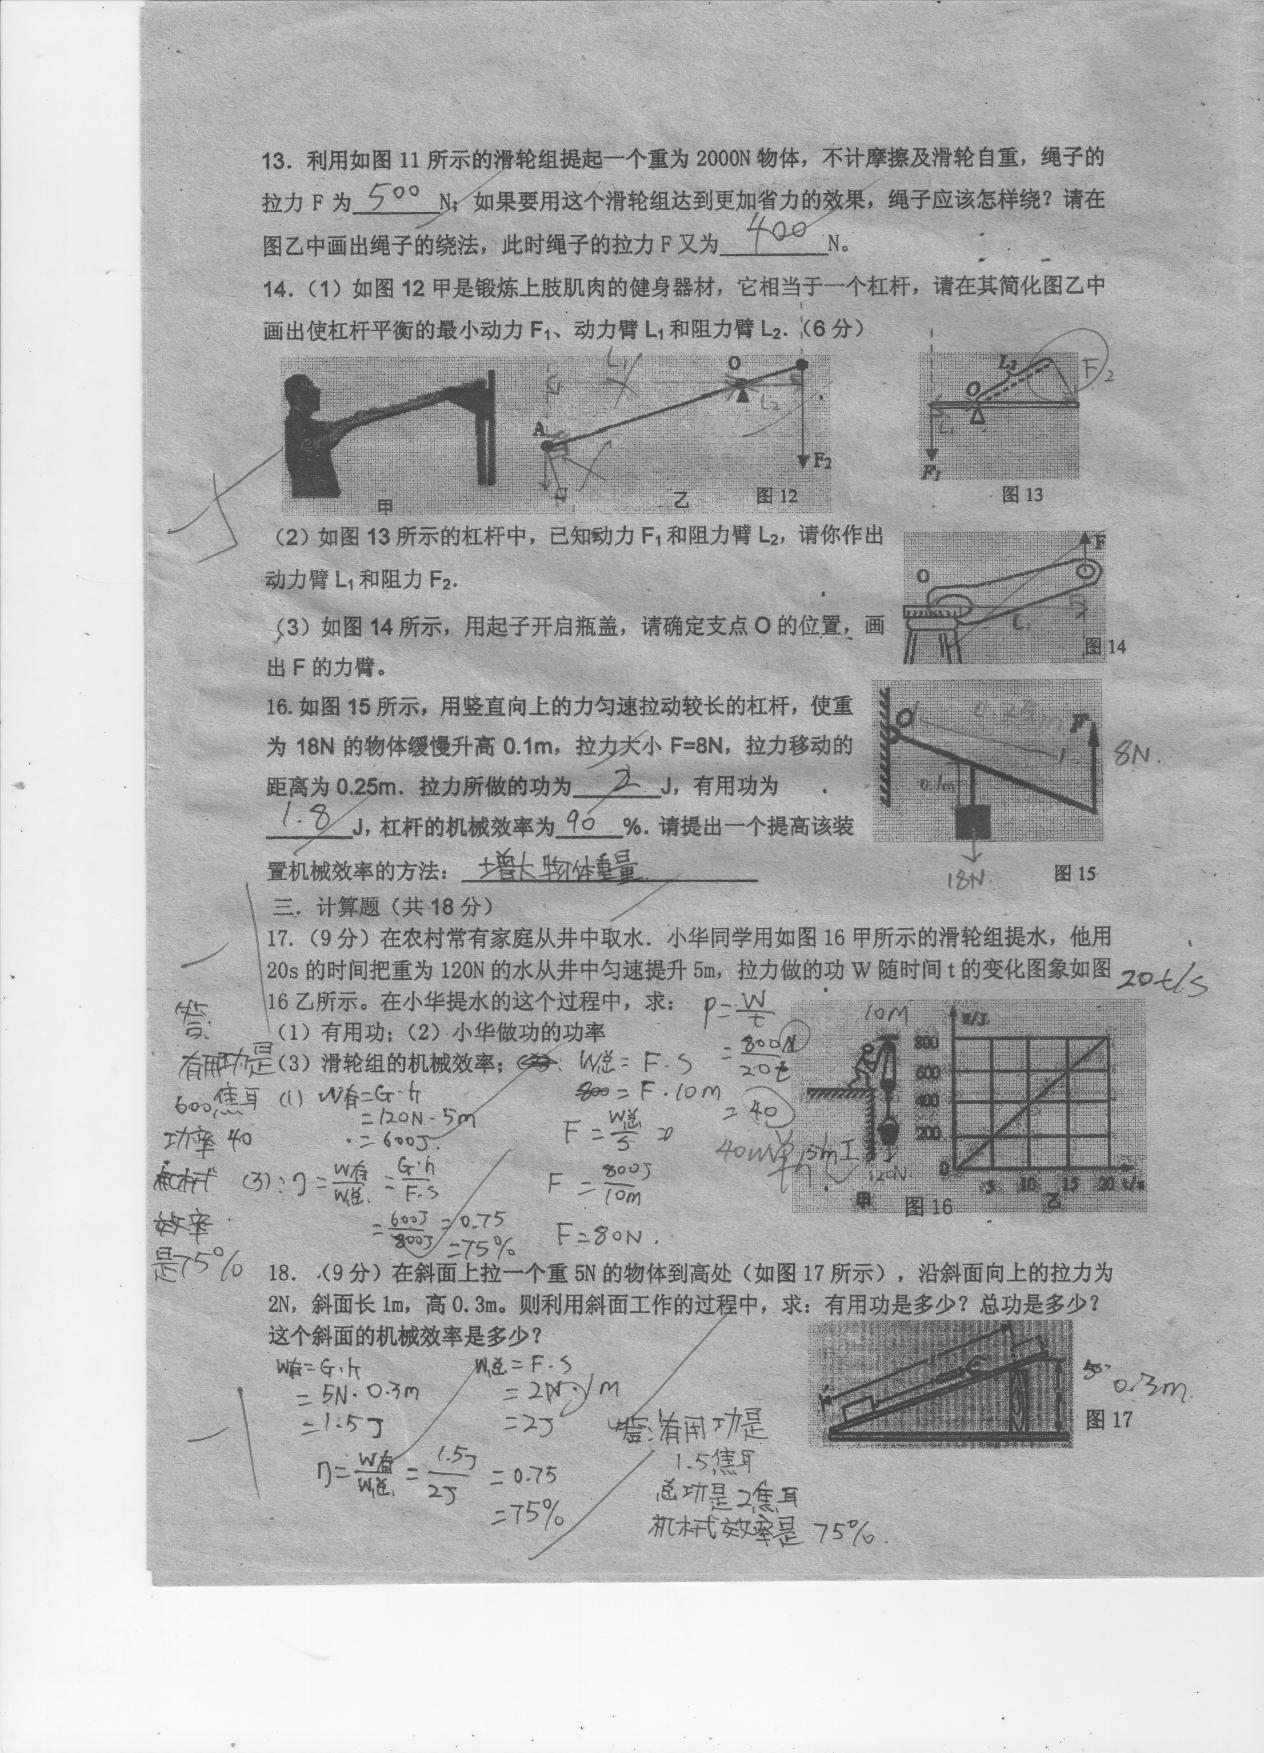 13. 利用如图 11 所示的滑轮组提起一个重为 2000N 物体，不计摩擦及滑轮自重，绳子的
拉力 F 为 500 N；如果要用这个滑轮组达到更加省力的效果，绳子应该怎样绕？请在
图乙中画出绳子的绕法，此时绳子的拉力 F 又为 400 N。
14.（1）如图 12 甲是锻炼上肢肌肉的健身器材，它相当于一个杠杆，请在其简化图乙中
画出使杠杆平衡的最小动力 F₁、动力臂 L₁ 和阻力臂 L₂.（6 分）
L₁
O
L₂
A
F₂
甲
乙
图 12
L₂
F₂
O
L₁
F₁
图 13
（2）如图 13 所示的杠杆中，已知动力 F₁ 和阻力臂 L₂，请你作出
动力臂 L₁ 和阻力 F₂.
（3）如图 14 所示，用起子开启瓶盖，请确定支点 O 的位置，画
出 F 的力臂。
F
O
L₁
图 14
16. 如图 15 所示，用竖直向上的力匀速拉动较长的杠杆，使重
为 18N 的物体缓慢升高 0.1m，拉力大小 F=8N，拉力移动的
距离为 0.25m. 拉力所做的功为 2 J，有用功为
1.8 J，杠杆的机械效率为 90 %. 请提出一个提高该装
置机械效率的方法： 增大物体重量
O
0.25m
F
8N.
0.1m
18N.
图 15
三. 计算题（共 18 分）
17.（9 分）在农村常有家庭从井中取水. 小华同学用如图 16 甲所示的滑轮组提水，他用
20s 的时间把重为 120N 的水从井中匀速提升 5m，拉力做的功 W 随时间 t 的变化图象如图
16 乙所示。在小华提水的这个过程中，求：
（1）有用功；（2）小华做功的功率
（3）滑轮组的机械效率；
20t/s
P=W/t
=800N/20t
=40
40w
答：
有用功是
600焦耳
功率40
机械
效率
是75%
(1) W有=G·h
=120N·5m
=600J.
(3): η=W有/W总=G·h/F·S
=600J/800J=0.75
=75%
W总=F·S
800=F·10m
F=W总/S
F=800J/10m
F=80N.
10M
5m
120N
甲
图 16
W/J
800
600
400
200
0
5
10
15
20
t/s
乙
18.（9 分）在斜面上拉一个重 5N 的物体到高处（如图 17 所示），沿斜面向上的拉力为
2N，斜面长 1m，高 0.3m。则利用斜面工作的过程中，求：有用功是多少？总功是多少？
这个斜面的机械效率是多少？
W有=G·h
=5N·0.3m
=1.5J
W总=F·S
=2N·1m
=2J
η=W有/W总=1.5J/2J=0.75
=75%
答：有用功是
1.5焦耳
总功是2焦耳
机械效率是75%.
0.3m.
图 17